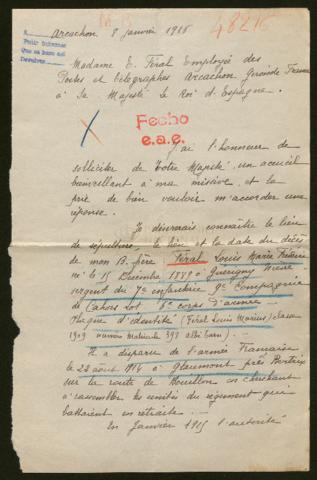 Arcachon 8 janvier 1916
48216
Pedir Informes
Que se haga así
Devolver
Madame E. Féral Employée des
Postes et télégraphes Arcachon Gironde France
à Sa Majesté le Roi d'Espagne.
Fecho
e.a.e.
J'ai l'honneur de
solliciter de Votre Majesté, un accueil
bienveillant à ma missive, et la
prie de bien vouloir m'accorder une
réponse.
Je désirerais connaître le lieu
de sépulture, le lieu et la date du décès
de mon B. frère Féral Louis Marie
né le 15 Décembre 1889 à Guérigny
sergent du 7e infanterie 9e Compagnie
de Cahors Lot 
Plaque d'identité (Féral Louis Marius) classe
1909 Matricule 393 Albi Tarn).
Il a disparu de l'armée Française
le 22 août 1914 à près Bertrix
sur la route de Bouillon en cherchant
à rassembler les unités du régiment qui
battaient en retraite. —
En Janvier 1915 l'autorité